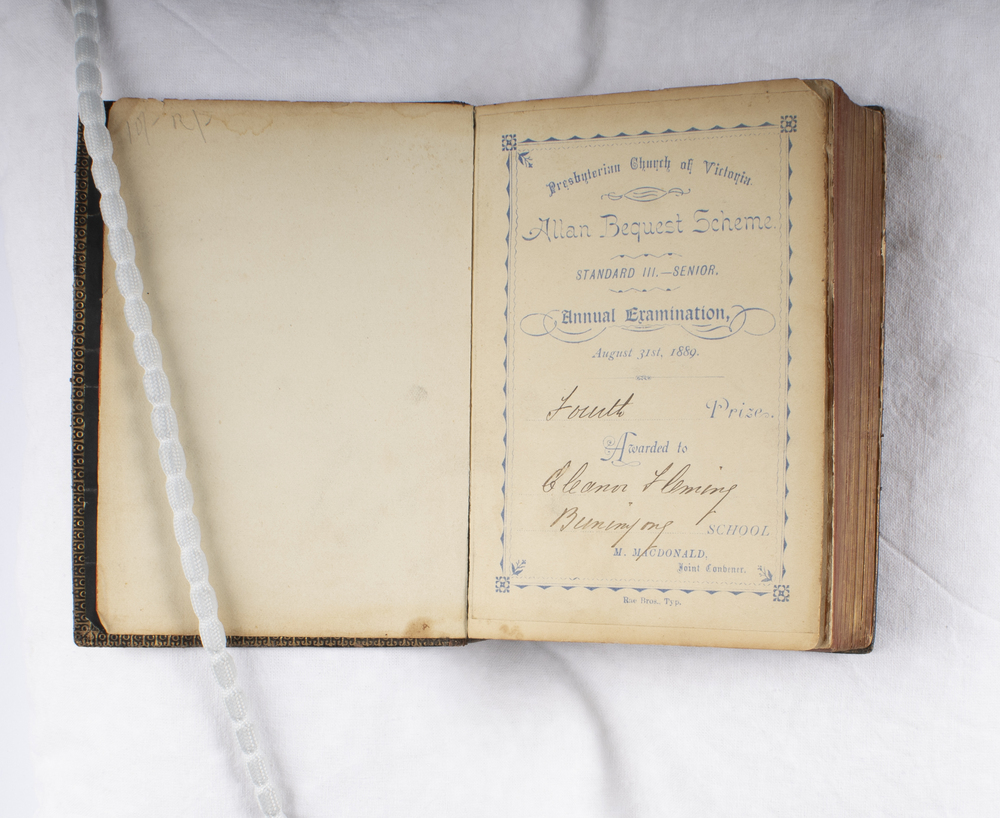 Presbyterian Church of Victoria.
Allan Bequest Scheme.
STANDARD III.—SENIOR.
Annual Examination,
August 31st, 1889.
Fourth Prize.
Awarded to
Eleanor Fleming
Buninyong SCHOOL
M. MACDONALD,
Joint Convener.
Rae Bros., Typ.